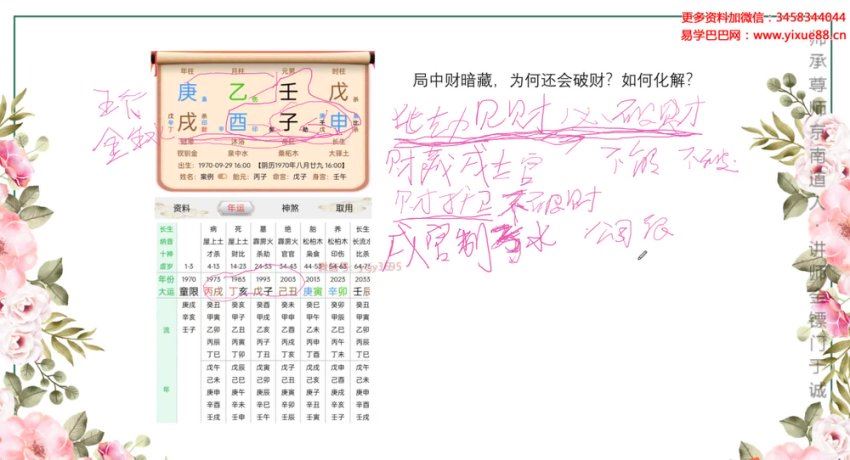 更多资料加微信:3458344044
易学巴巴网:www.yixue88.cn
师承尊师东南道人·讲师金镖门于诚
年柱 月柱 元男 时柱
庚 乙 壬 戊
戌 酉 子 申
钗钏金 泉中水 桑柘木 大驿土
出生:1970-09-29 16:00【阴历1970年八月廿九 16:00】
姓名:案例 胎元:丙子 命宫:戊子 身宫:壬午
局中财暗藏,为何还会破财?如何化解?
五行
财藏戌土官
资料 年运 神煞 取用
长生 病 死 墓 绝 胎 养 长生
纳音 屋上土 屋上土 霹雳火 霹雳火 松柏木 松柏木 长流水
十神 才杀 财比 杀劫 官官 枭食 印伤 比杀
虚岁 1-3 4-13 14-23 24-33 34-43 44-53 54-63 64-73
年份 1970 1973 1983 1993 2003 2013 2023 2033
大运 童限 丙戌 丁亥 戊子 己丑 庚寅 辛卯 壬辰
流年
庚戌 癸丑 癸亥 癸酉 癸未 癸巳 癸卯 癸丑
辛亥 甲寅 甲子 甲戌 甲申 甲午 甲辰 甲寅
壬子 乙卯 乙丑 乙亥 乙酉 乙未 乙巳 乙卯
丙辰 丙寅 丙子 丙戌 丙申 丙午 丙辰
丁巳 丁卯 丁丑 丁亥 丁酉 丁未 丁巳
戊午 戊辰 戊寅 戊子 戊戌 戊申 戊午
己未 己巳 己卯 己丑 己亥 己酉 己未
庚申 庚午 庚辰 庚寅 庚子 庚戌 庚申
辛酉 辛未 辛巳 辛卯 辛丑 辛亥 辛酉
壬戌 壬申 壬午 壬辰 壬寅 壬子 壬戌